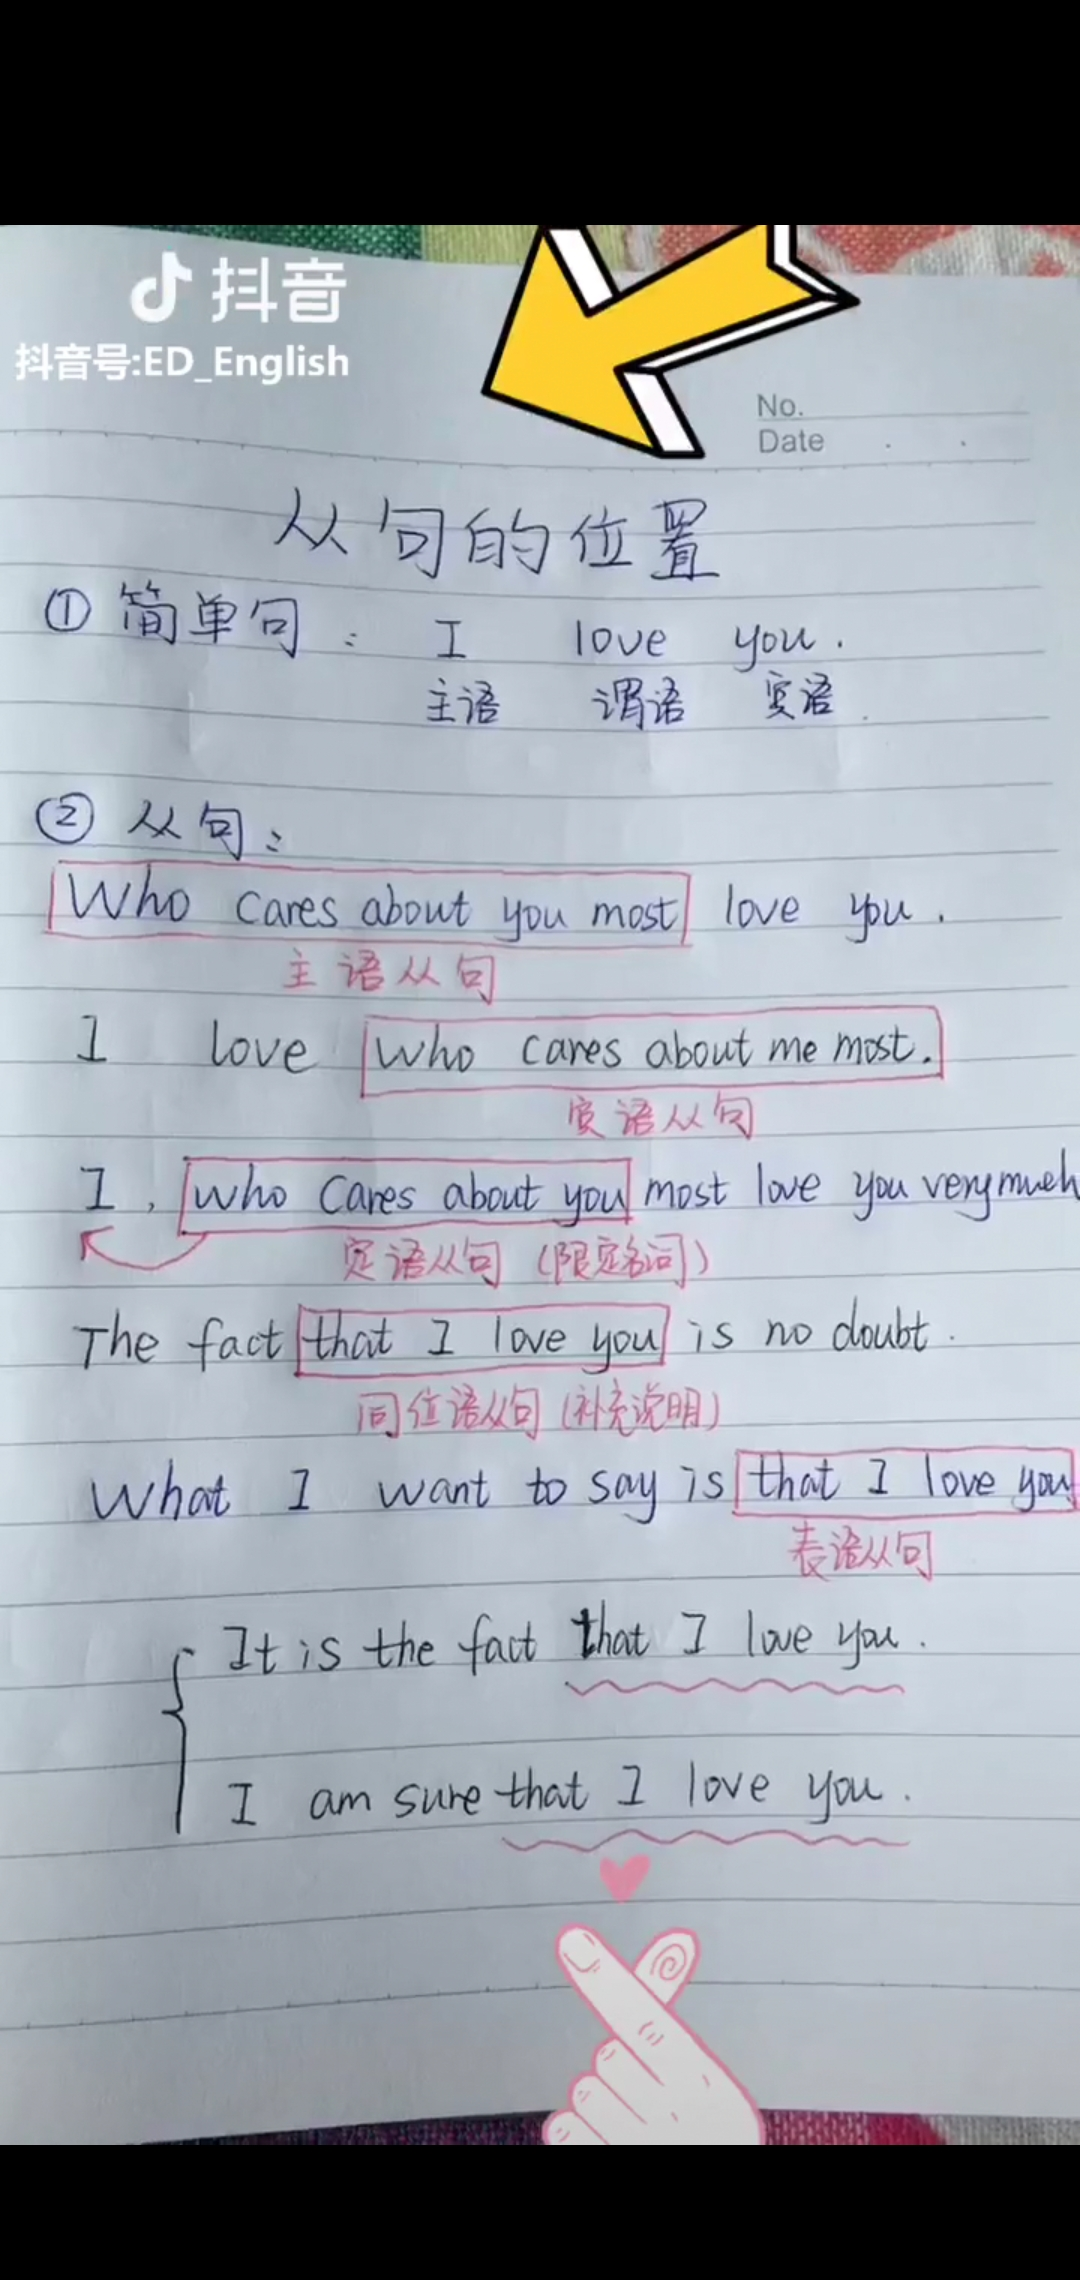 抖音
抖音号:ED_English
No.
Date
从句的位置
① 简单句: I love you.
主语 谓语 宾语
② 从句:
Who cares about you most love you.
主语从句
I love who cares about me most.
宾语从句
I, who cares about you most love you very much
定语从句 (限定名词)
The fact that I love you is no doubt.
同位语从句 (补充说明)
What I want to say is that I love you
表语从句
It is the fact that I love you.
I am sure that I love you.